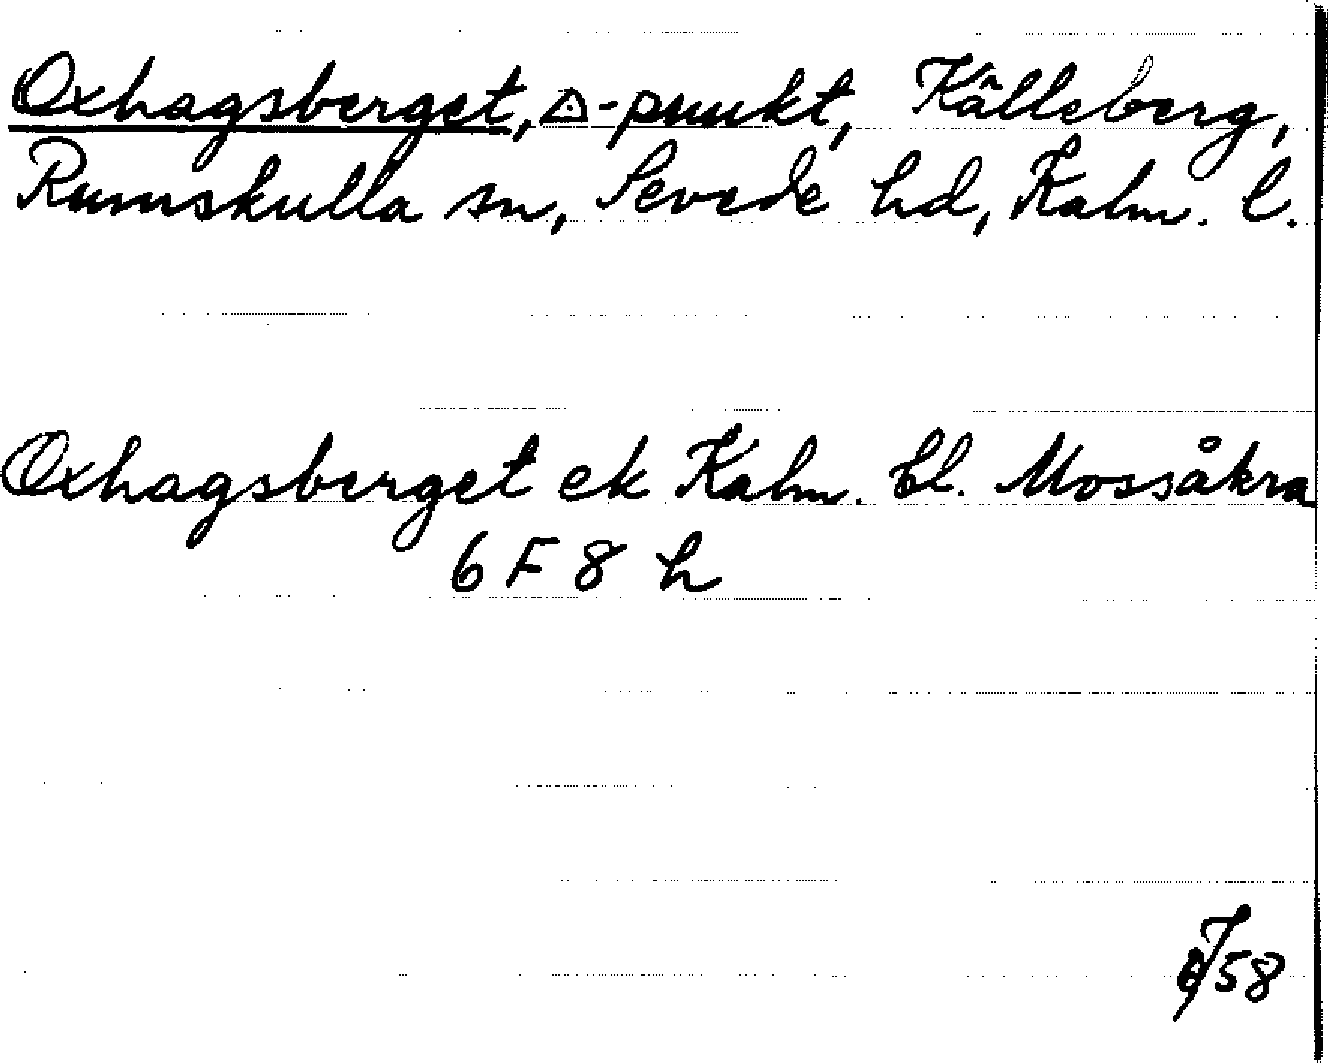 Oxhagsberget, △-punkt, Källeberg,
Rumskulla sn, Sevede hd, Kalm. l.
Oxhagsberget ek Kalm. bl. Mossåkra
6 F 8 h
58